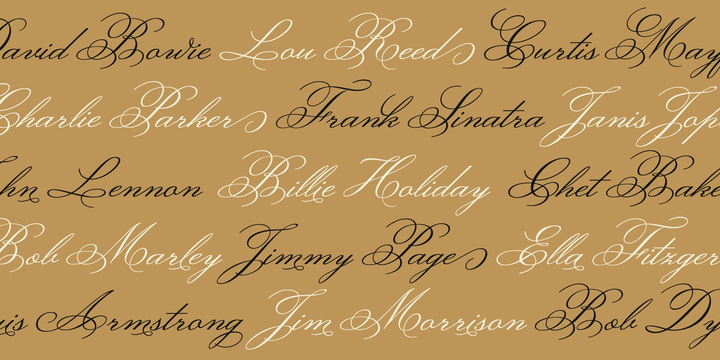 David Bowie Lou Reed Curtis Mayf
Charlie Parker Frank Sinatra Janis Jop
hn Lennon Billie Holiday Chet Bake
Bob Marley Jimmy Page Ella Fitzger
uis Armstrong Jim Morrison Bob Dy